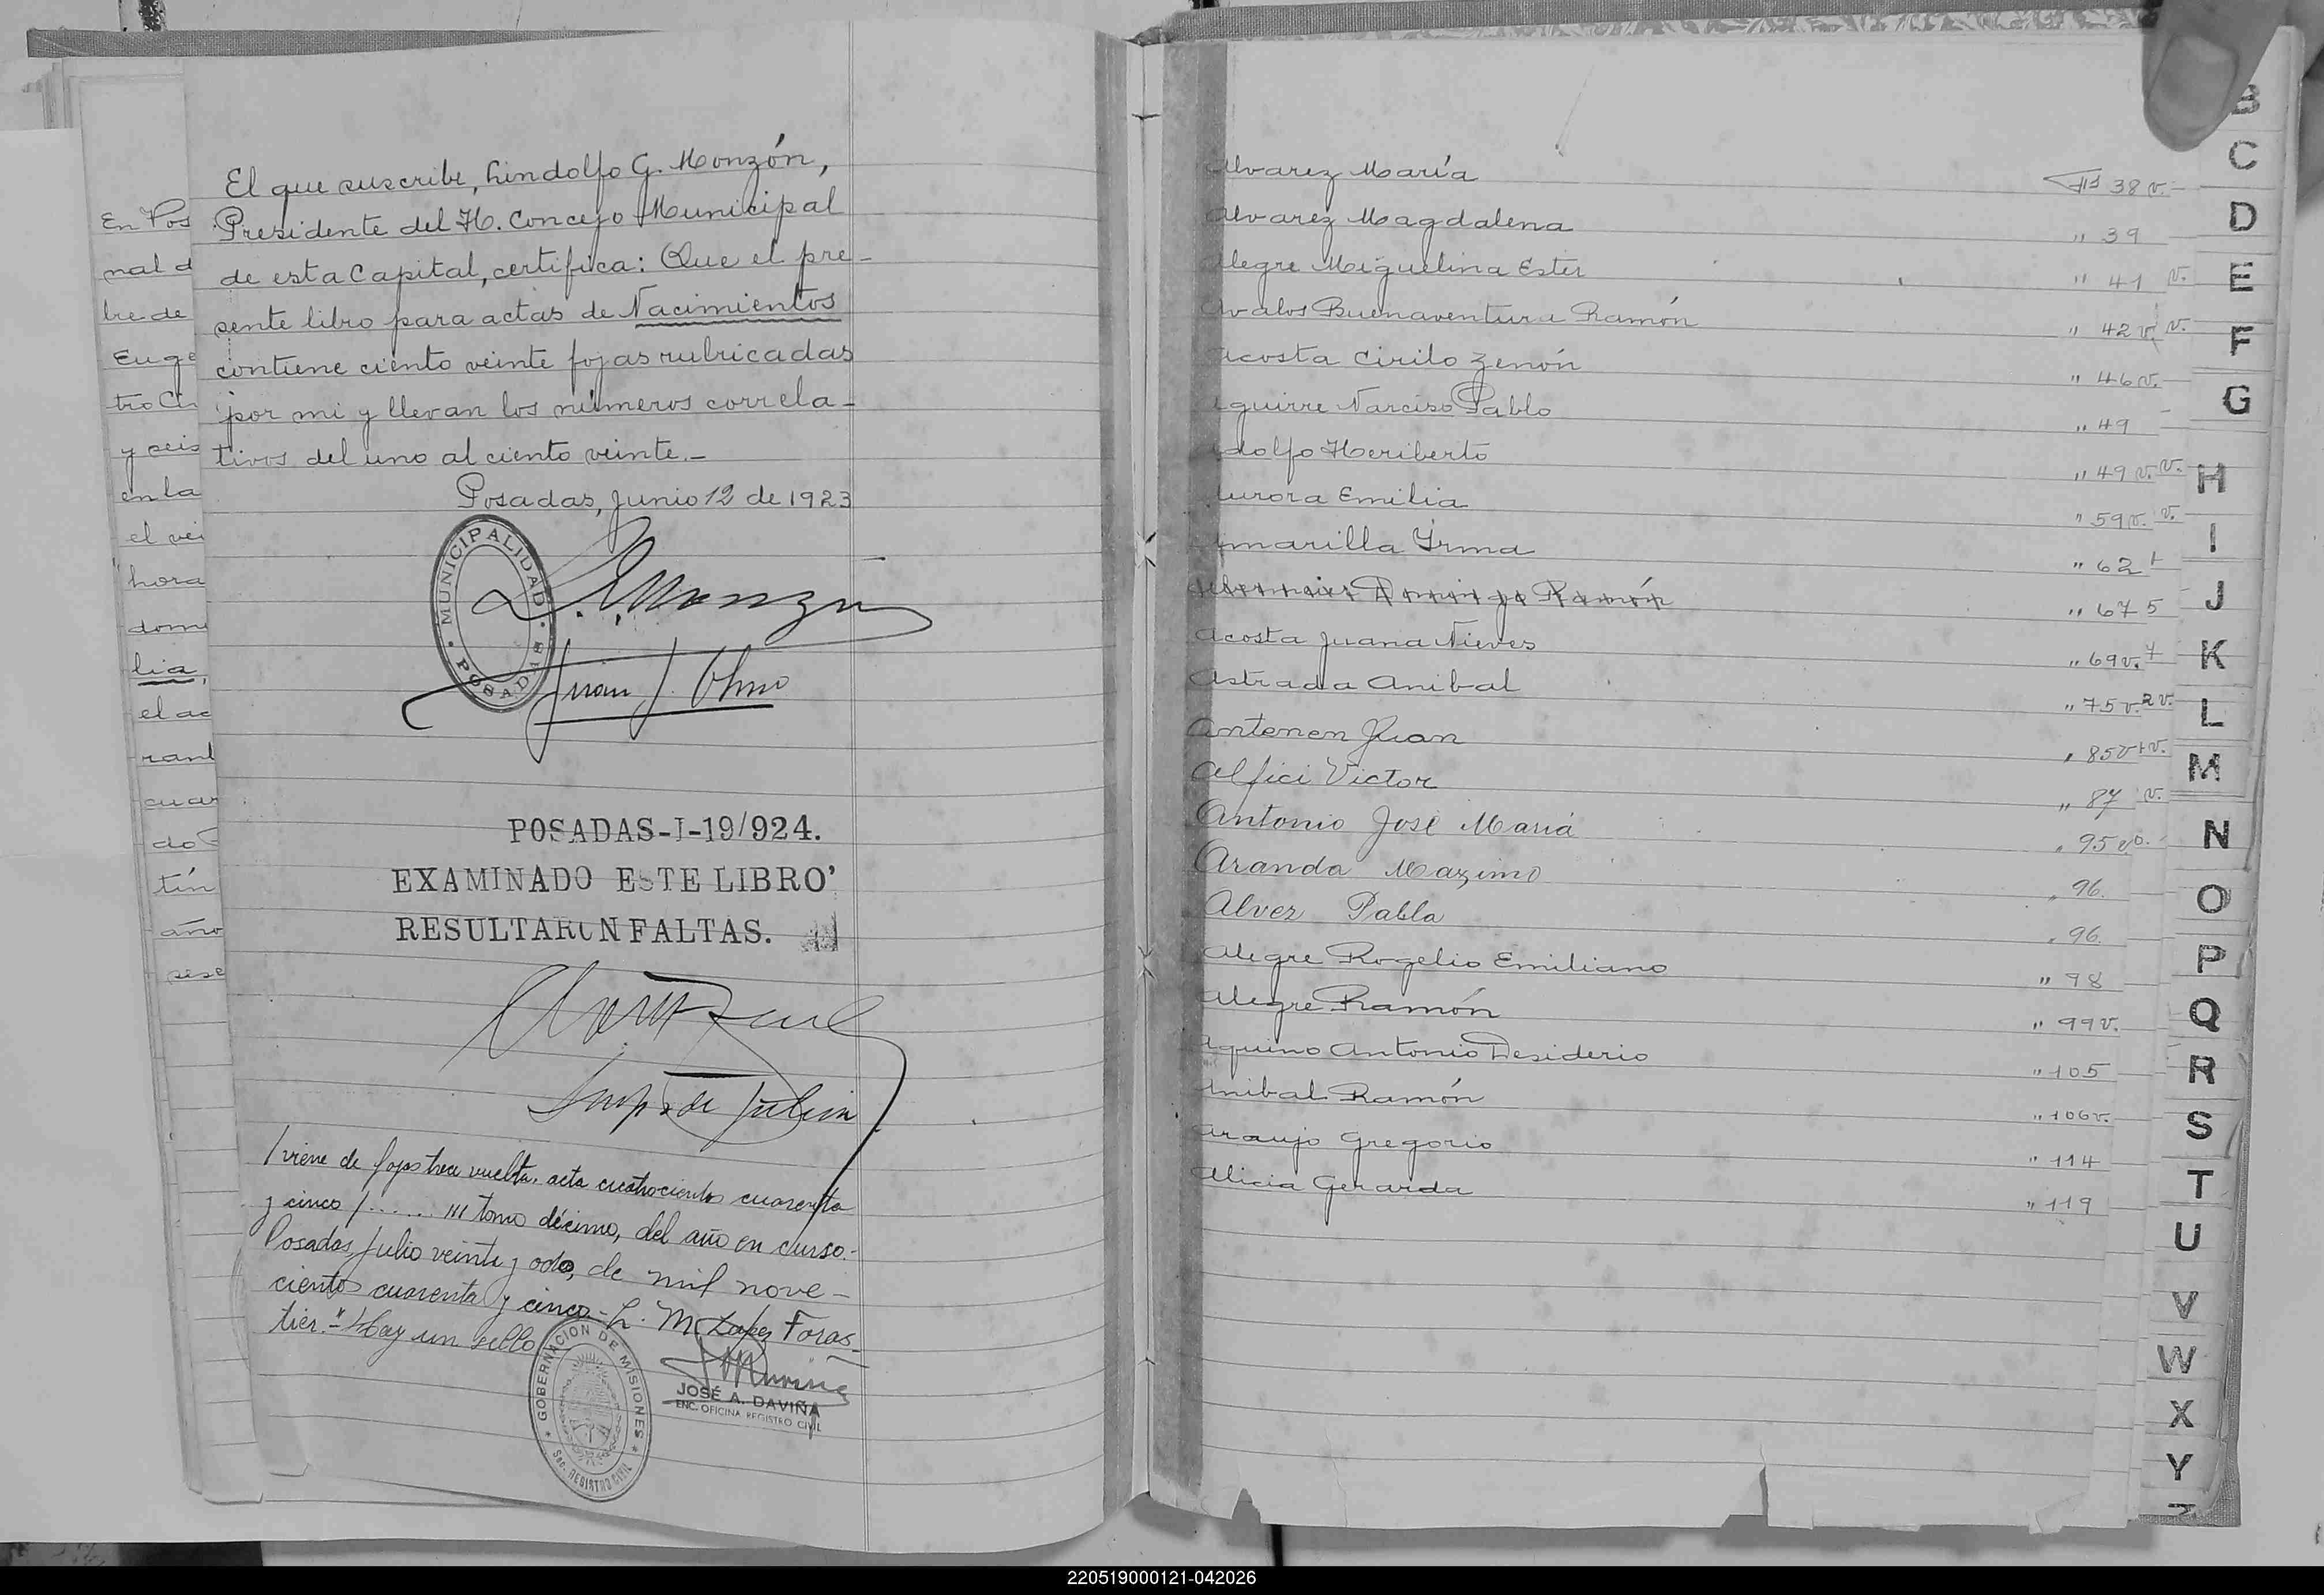 En Pos
nal d
bre de
Euge
tro Ci
y seis
en la
el vei
hora
domi
lia,
el ac
rant
cuar
do
tín
año
sese
El que suscribe, Lindolfo G. Monzón,
Presidente del H. Concejo Municipal
de esta Capital, certifica: Que el pre-
sente libro para actas de Nacimientos
contiene ciento veinte fojas rubricadas
por mi y llevan los números correla-
tivos del uno al ciento veinte.-
Posadas, Junio 12 de 1923
MUNICIPALIDAD POSADAS
L. G. Monzón
Juan J.
POSADAS-I-19/924.
EXAMINADO ESTE LIBRO
RESULTARON FALTAS.
/ viene de fojas trece vuelta, acta cuatrocientos cuarenta
y cinco /...... III tomo décimo, del año en curso.-
Posadas, Julio veinte y ocho, de mil nove-
cientos cuarenta y cinco - L. M. Lopez Foras-
tier.- Hay un sello
GOBERNACION DE MISIONES
Sec. REGISTRO CIVIL
JOSÉ A. DAVIÑA
ENC. OFICINA REGISTRO CIVIL
Alvarez María Fjs 38 v.-
Alvarez Magdalena " 39
Alegre Miguelina Ester " 41 v.
Avalos Buenaventura Ramón " 42 v. v.
Acosta Cirilo Zenón " 46 v.
Aguirre Narciso Pablo " 49
Adolfo Heriberto " 49 v. v.
Aurora Emilia " 59 v. v.
Amarilla Yrma " 62
Domingo Ramón " 67 5
Acosta Juana Nieves " 69 v.
Astrada Anibal " 75 v. 2 v.
Antenen Juan " 85 v.
Alfici Victor " 87 v.
Antonio José María " 95 vo.
Aranda Mazimo " 96.
Alvez Pabla " 96.
Alegre Rogelio Emiliano " 98
Alegre Ramón " 99 v.
Aquino Antonio Desiderio " 105
Anibal Ramón " 106 v.
Araujo Gregorio " 114
Alicia Gerarda " 119
B
C
D
E
F
G
H
I
J
K
L
M
N
O
P
Q
R
S
T
U
V
W
X
Y
Z
220519000121-042026